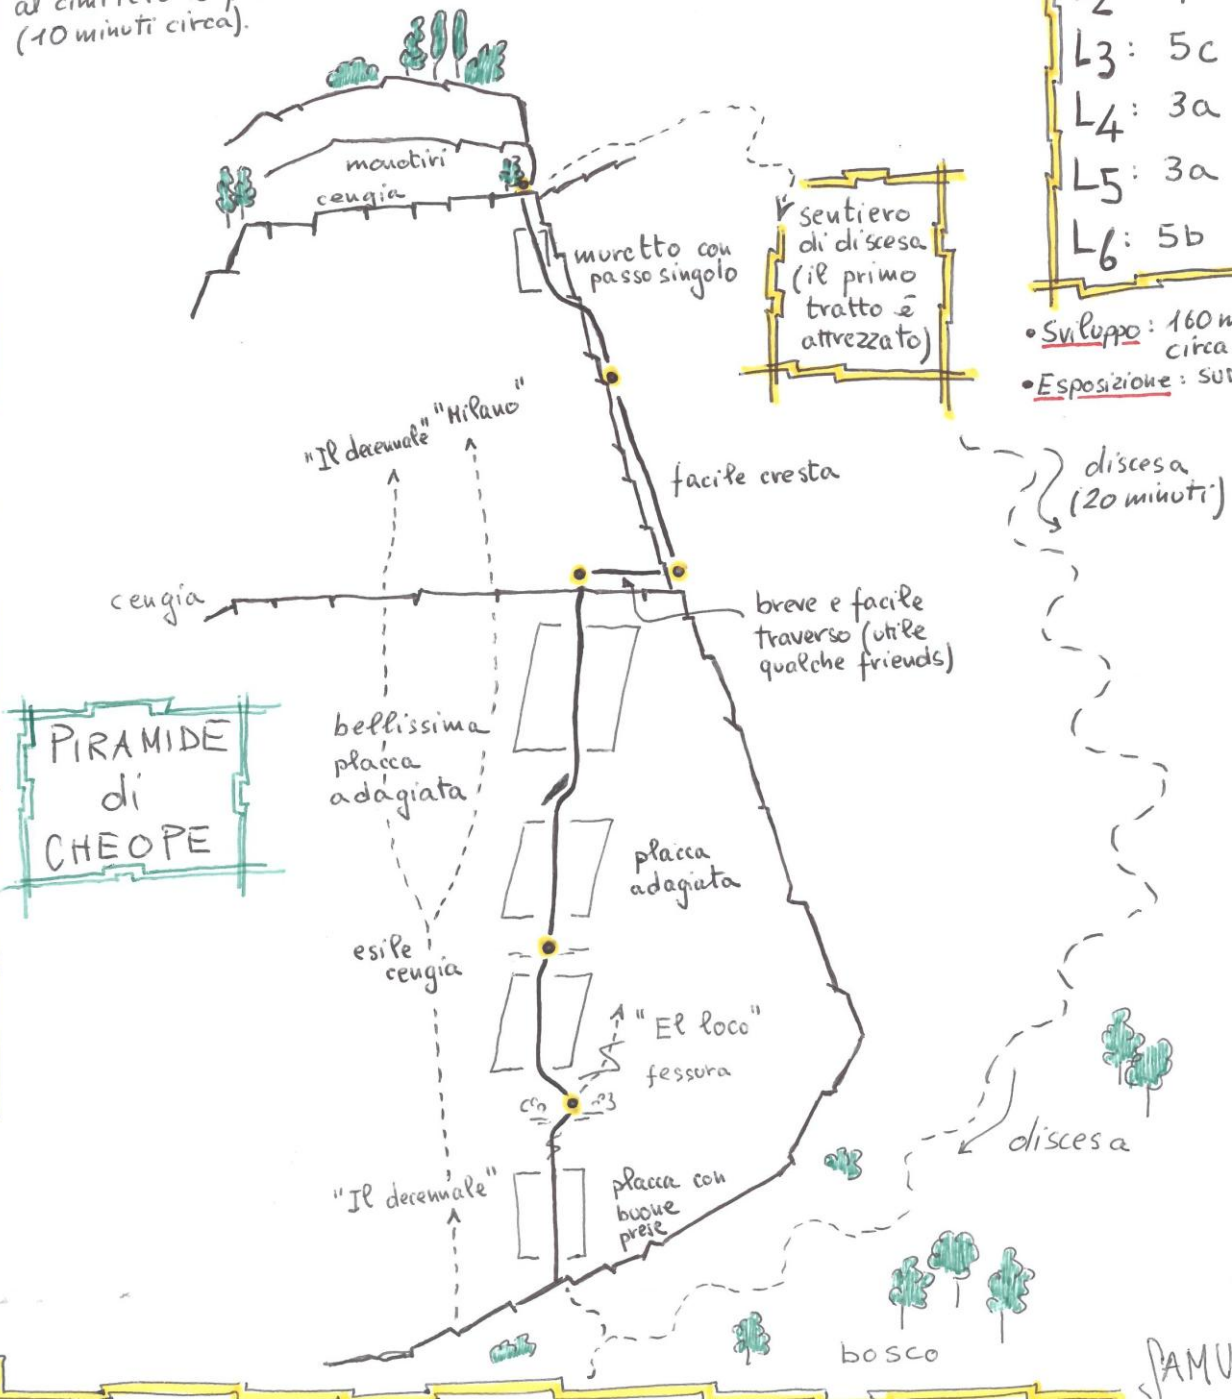 (10 minuti circa).
L3: 5c
L4: 3a
L5: 3a
L6: 5b
• Sviluppo: 160 m
circa
• Esposizione:
monotiri
cengia
muretto con
passo singolo
sentiero
di discesa
(il primo
tratto è
attrezzato)
"Il decennale"
"Milano"
facile cresta
discesa
(20 minuti)
cengia
breve e facile
traverso (utile
qualche friends)
PIRAMIDE
di
CHEOPE
bellissima
placca
adagiata
placca
adagiata
esile
cengia
"El loco"
fessura
discesa
"Il decennale"
placca con
buone
prese
bosco